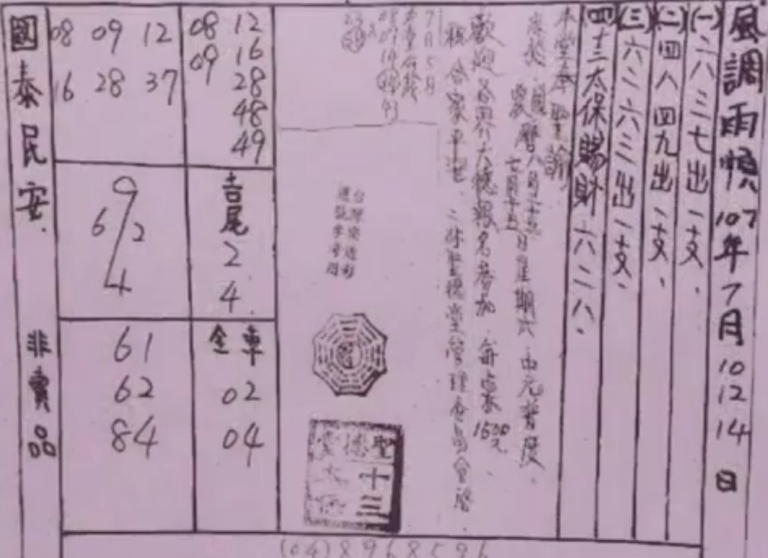 風調雨順 107年7月10 12 14日
(一)二六八三七出一支、
(二)四八四九出一支、
(三)六二六三出一支、
(四)十三太保賜財六二八、
本堂奉聖諭
農曆七月十五日星期六中元普度、
歡迎各界大德報名參加、每桌1600元
闔家平安、
管理委員會啓
7月5日
台灣樂透彩
選號參考用
聖德堂
十三太保
08 12
09 16
28
48
49
吉尾
2
4
全車
02
04
08 09 12
16 28 37
9
6/2
4
61
62
84
國泰民安
非賣品
(04)8968596